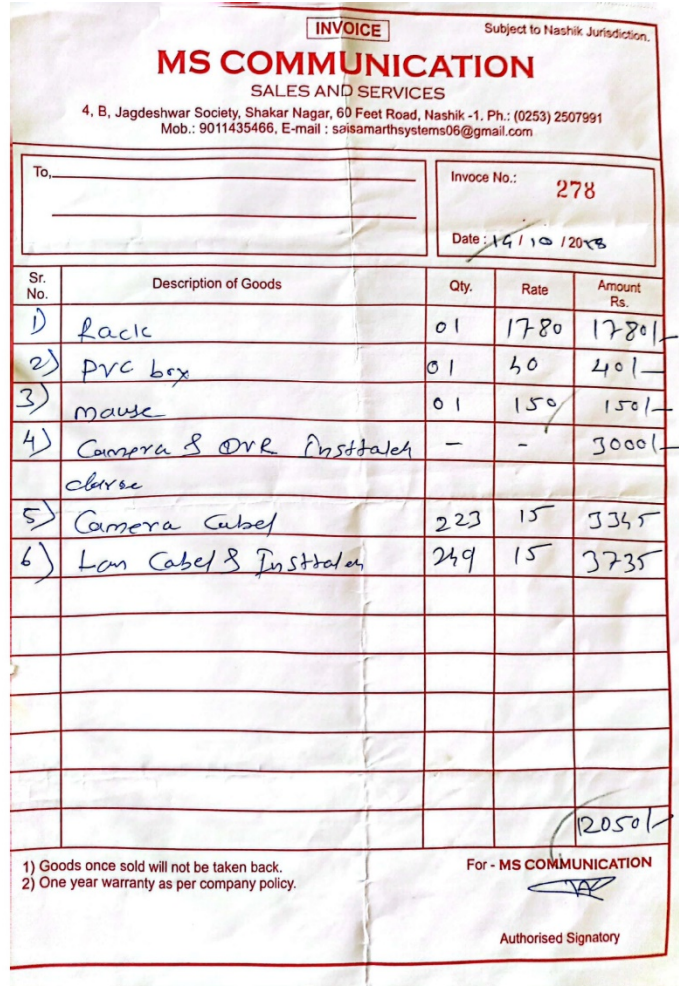 INVOICE
Subject to Nashik Jurisdiction.
MS COMMUNICATION
SALES AND SERVICES
4, B, Jagdeshwar Society, Shakar Nagar, 60 Feet Road, Nashik -1. Ph.: (0253) 2507991
Mob.: 9011435466, E-mail : saisamarthsystems06@gmail.com
To,
Invoce No.: 278
Date : 14 / 10 / 2018
Sr. No. Description of Goods Qty. Rate Amount Rs.
1) Rack 01 1780 1780/-
2) PVC box 01 40 40/-
3) mause 01 150 150/-
4) Camera & DVR Insttaleh - - 3000/-
5) Camera Cabel 223 15 3345
6) Lan Cabel & Insttaleh 249 15 3735
12050/-
1) Goods once sold will not be taken back.
2) One year warranty as per company policy.
For - MS COMMUNICATION
Authorised Signatory